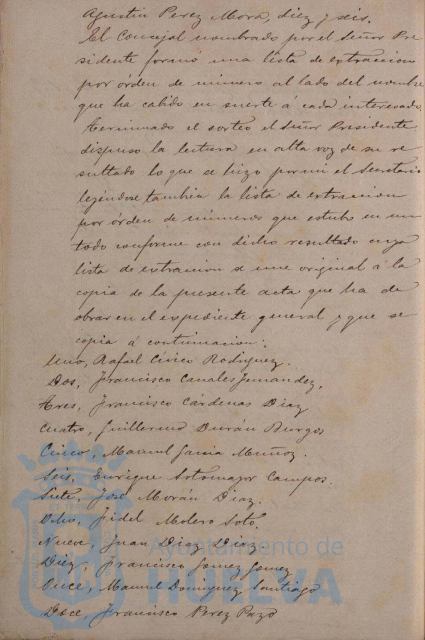 Agustin Perez Mora, diez y seis.
El Concejal nombrado por el Señor Pre
sidente formó una lista de extraccion
por órden de número al lado del nombre
que ha cabido en suerte á cada interesado.
Terminado el sorteo el Señor Presidente
dispuso la lectura en alta voz de su re
sultado lo que se hizo por mi el Secretario
leyéndose tambien la lista de extraccion
por órden de números que estubo en un
todo conforme con dicho resultado cuya
lista de extraccion se une original á la
copia de la presente acta que ha de
obrar en el espediente general y que se
copia á continuacion:
Uno, Rafael Cívico Rodriguez.
Dos, Francisco Canales Fernandez,
Tres, Francisco Cárdenas Diaz
Cuatro, Guillermo Durán Burgos
Cinco, Manuel Garcia Muñoz.
Seis, Enrique Sotomayor Campos.
Siete, José Morán Diaz.
Ocho, Fidel Molero Soto.
Nueve Juan Diaz Diaz
Diez, Francisco Gomez Gomez
Once, Manuel Dominguez Santiago
Doce, Francisco Perez Pazo
Ayuntamiento de
HUELVA